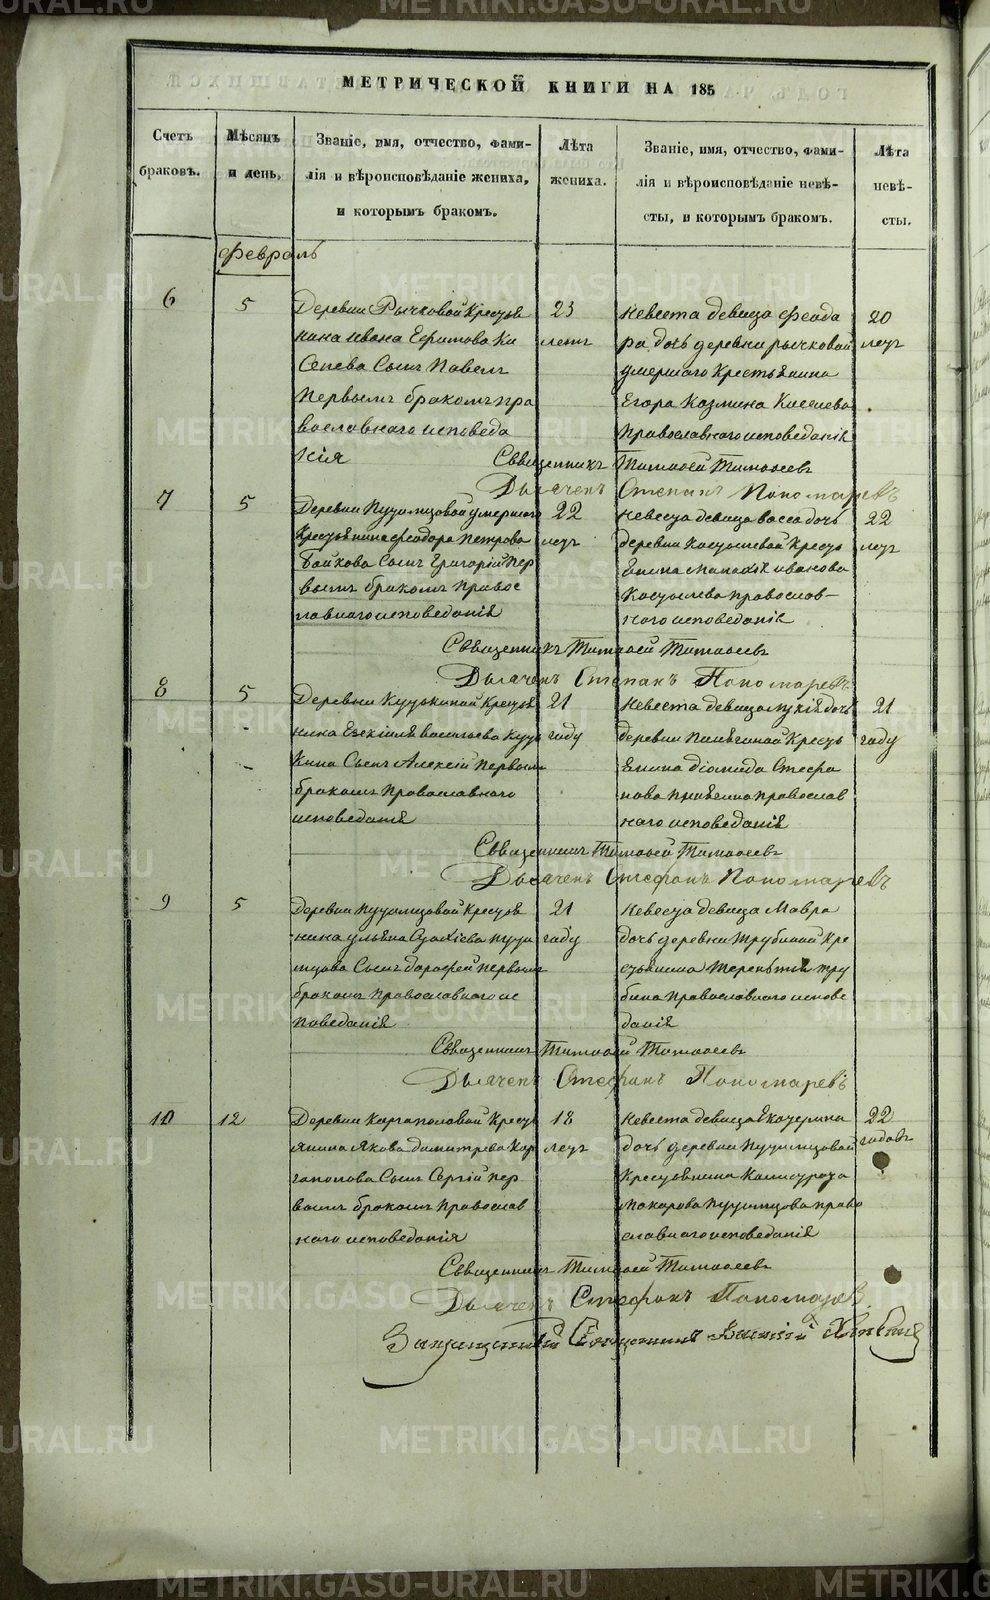 МЕТРИЧЕСКОЙ КНИГИ НА 185
Счетъ браковъ.
Мѣсяцъ и день.
Званіе, имя, отчество, фами-
лія и вѣроисповѣданіе жениха,
и которымъ бракомъ.
Лѣта
жениха.
Званіе, имя, отчество, фами-
лія и вѣроисповѣданіе невѣ-
сты, и которымъ бракомъ.
Лѣта
невѣ-
сты.
Февраль
6
5
Деревни Рычковой Кресть
нина Ивана Ефимова Ки
Селева Сынъ Павелъ
Первымъ бракомъ пра
вославнаго исповеда
нія
23
летъ
Невеста девица Феодо
ра дочь деревни рычковой
умершаго Крестьянина
Егора Козмина Киселева
Православнаго исповеданія
20
летъ
Священникъ Тимофей Тимофеевъ
Дьячекъ Степанъ Пономаревъ
7
5
Деревни умершаго
Крестьянина Феодора Петрова
Байкова Сынъ Григорій Пер
вымъ бракомъ Правос
лавнаго исповеданія
22
летъ
Невеста девица Васса дочь
деревни Крестъ
янина Иванова
Православ-
наго исповеданія
22
летъ
Священникъ Тимофей Тимофеевъ
Дьячекъ Степанъ Пономаревъ
8
5
Деревни Крестья
нина Езекіиля Васильева
Кина Сынъ Алексій Первымъ
бракомъ Православнаго
исповеданія
21
году
Невеста девица дочь
деревни Кресть
янина Діомида Стефа
нова Православ
наго исповеданія
21
году
Священникъ Тимофей Тимофеевъ
Дьячекъ Стефанъ Пономаревъ
9
5
Деревни Крестья
нина Ульяна
Сынъ Дорофей Первымъ
бракомъ Православнаго ис
поведанія
21
году
Невеста девица Мавра
дочь деревни Трубиной Кре
стьянина Терентія Тру
бина Православнаго испове
данія
Священникъ Тимофей Тимофеевъ
Дьячекъ Стефанъ Пономаревъ
10
12
Деревни Каргаполовой Кресть
янина Якова Димитрева Кар
гаполова Сынъ Сергій Пер
вымъ бракомъ Православ
наго исповеданія
18
летъ
Невеста девица Екатерина
дочь деревни
Крестьянина
Макарова право
славнаго исповеданія
22
годовъ
Священникъ Тимофей Тимофеевъ
Дьячекъ Стефанъ Пономаревъ
Священникъ
METRIKI.GASO-URAL.RU